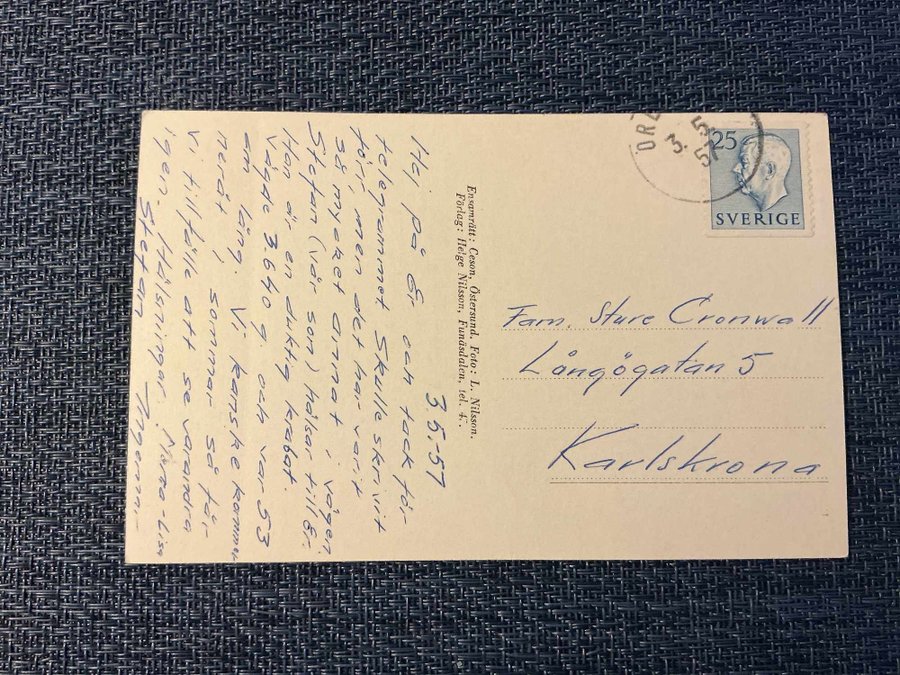 3.5.57
Hej på Er och tack för
telegrammet. Skulle skrivit
förr men det har varit
så mycket annat i vägen.
Stefan (vår son) hälsar till Er.
Han är en duktig krabat.
Vägde 3640 g och var 53
cm lång. Vi kanske kommer
neråt i sommar så får
vi tillfälle att se varandra
igen. Hälsningar
Stefan Ingemar
Ensamrätt: Ceson, Östersund. Foto: L. Nilsson.
Förlag: Helge Nilsson, Funäsdalen, tel. 47.
3. 5
57
25
SVERIGE
Fam. Sture Cronwall
Långögatan 5
Karlskrona